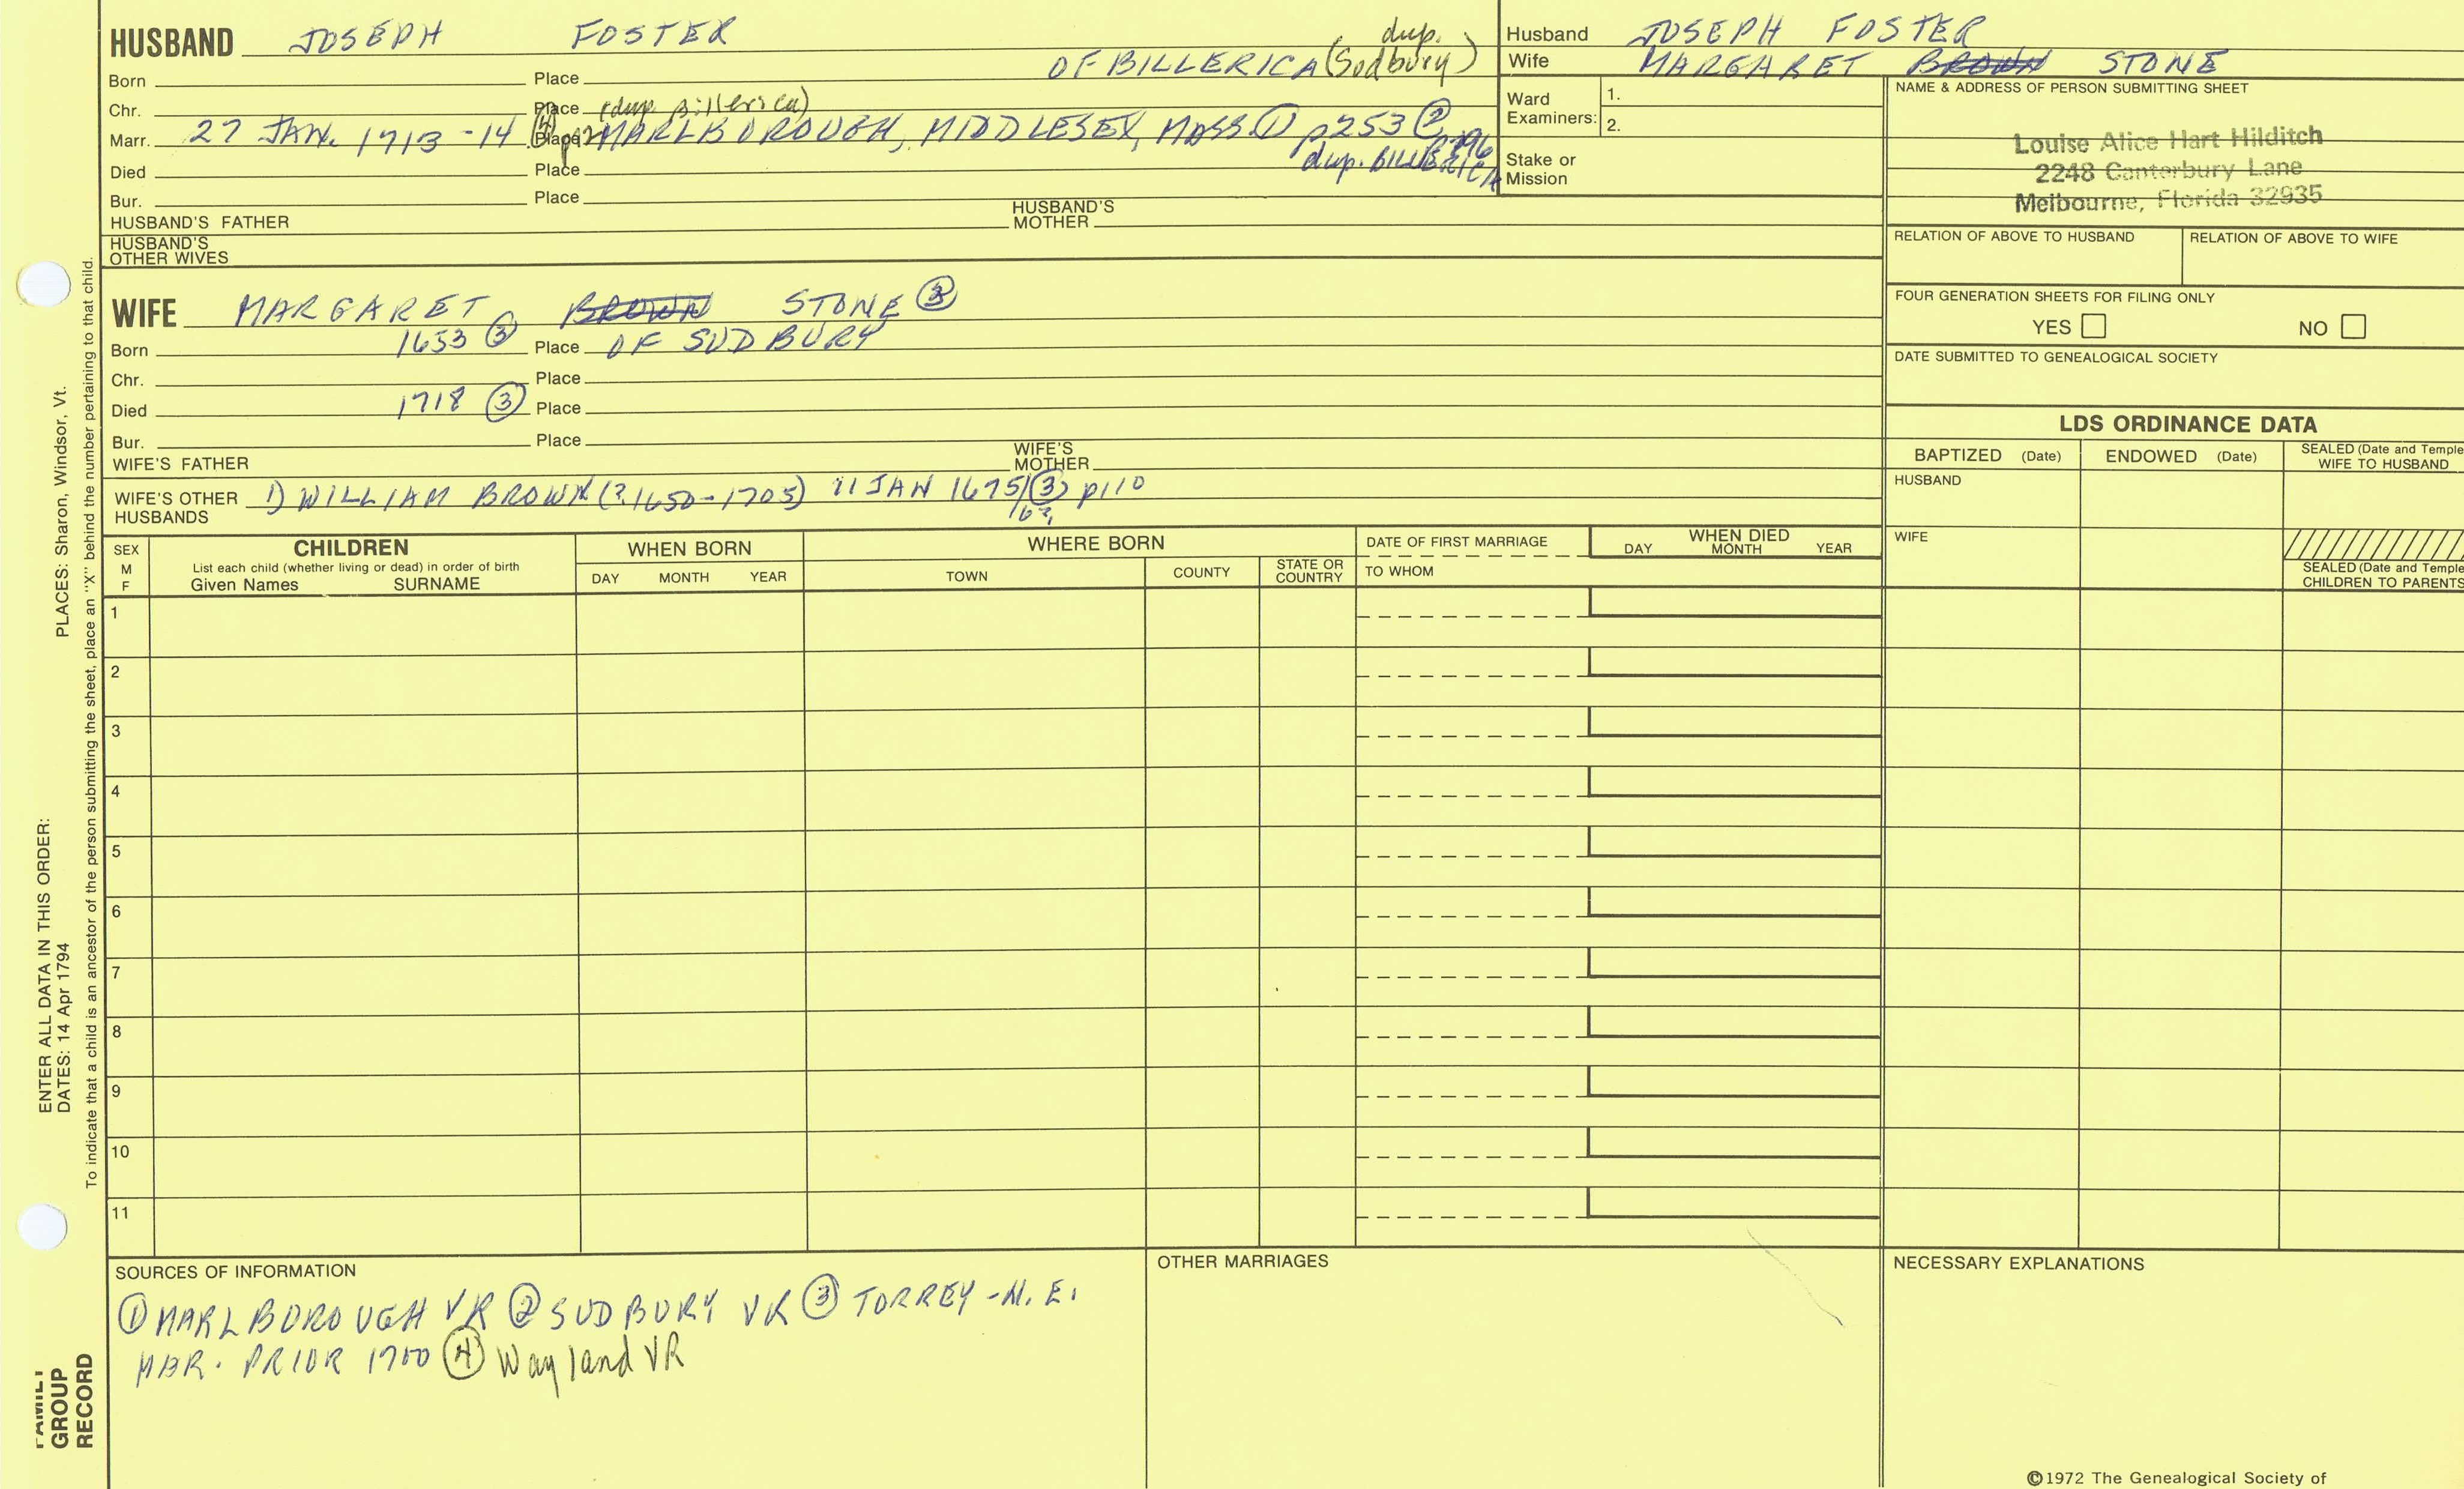 HUSBAND JOSEPH FOSTER
OF BILLERICA (Sudbury) dup.
Born Place
Chr. Place (dup Billerica)
Marr. 27 JAN. 1713-14 (4) Place MARLBOROUGH, MIDDLESEX, MASS (1) p253 (2)
dup. BILLERICA
Died Place
Bur. Place
HUSBAND'S FATHER HUSBAND'S MOTHER
HUSBAND'S OTHER WIVES
Husband JOSEPH FOSTER
Wife MARGARET BROWN STONE
Ward Examiners: 1.
2.
Stake or Mission
NAME & ADDRESS OF PERSON SUBMITTING SHEET
Louise Alice Hart Hilditch
2248 Canterbury Lane
Melbourne, Florida 32935
RELATION OF ABOVE TO HUSBAND RELATION OF ABOVE TO WIFE
FOUR GENERATION SHEETS FOR FILING ONLY
YES NO
DATE SUBMITTED TO GENEALOGICAL SOCIETY
WIFE MARGARET BROWN STONE (3)
Born 1653 (3) Place OF SUDBURY
Chr. Place
Died 1718 (3) Place
Bur. Place
WIFE'S FATHER WIFE'S MOTHER
WIFE'S OTHER HUSBANDS 1) WILLIAM BROWN (?1650-1705) 11 JAN 1675/ (3) p110
LDS ORDINANCE DATA
BAPTIZED (Date) ENDOWED (Date) SEALED (Date and Temple
WIFE TO HUSBAND
HUSBAND
WIFE
SEALED (Date and Temple
CHILDREN TO PARENTS
SEX M F
CHILDREN
List each child (whether living or dead) in order of birth
Given Names SURNAME
WHEN BORN
DAY MONTH YEAR
WHERE BORN
TOWN COUNTY STATE OR COUNTRY
DATE OF FIRST MARRIAGE
TO WHOM
WHEN DIED
DAY MONTH YEAR
1
2
3
4
5
6
7
8
9
10
11
SOURCES OF INFORMATION
(1) MARLBOROUGH VR (2) SUDBURY VR (3) TORREY - N.E.
MAR. PRIOR 1700 (4) Wayland VR
OTHER MARRIAGES
NECESSARY EXPLANATIONS
©1972 The Genealogical Society of
PLACES: Sharon, Windsor, Vt.
ENTER ALL DATA IN THIS ORDER:
DATES: 14 Apr 1794
To indicate that a child is an ancestor of the person submitting the sheet, place an "X" behind the number pertaining to that child.
FAMILY
GROUP
RECORD